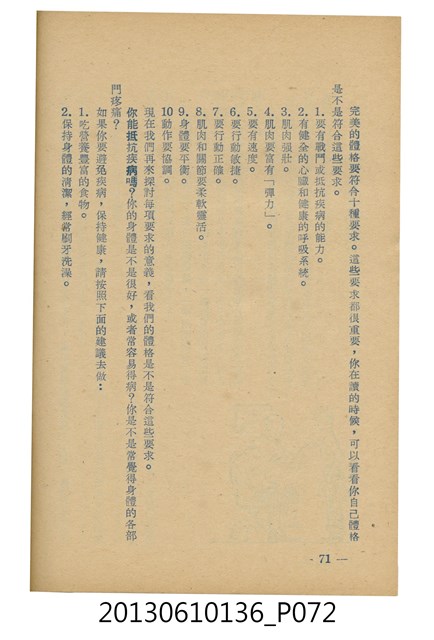 完美的體格要符合十種要求。這些要求都很重要，你在讀的時候，可以看看你自己體格
是不是符合這些要求。
1.要有戰鬥或抵抗疾病的能力。
2.有健全的心臟和健康的呼吸系統。
3.肌肉強壯。
4.肌肉要富有「彈力」。
5.要有速度。
6.要行動敏捷。
7.要行動正確。
8.肌肉和關節要柔軟靈活。
9.身體要平衡。
10動作要協調。
現在我們再來探討每項要求的意義，看我們的體格是不是符合這些要求。
你能抵抗疾病嗎？你的身體是不是很好，或者常容易得病？你是不是常覺得身體的各部
門疼痛？
如果你要避免疾病，保持健康，請按照下面的建議去做：
1.吃營養豐富的食物。
2.保持身體的清潔，經常刷牙洗澡。
- 71 —
20130610136_P072